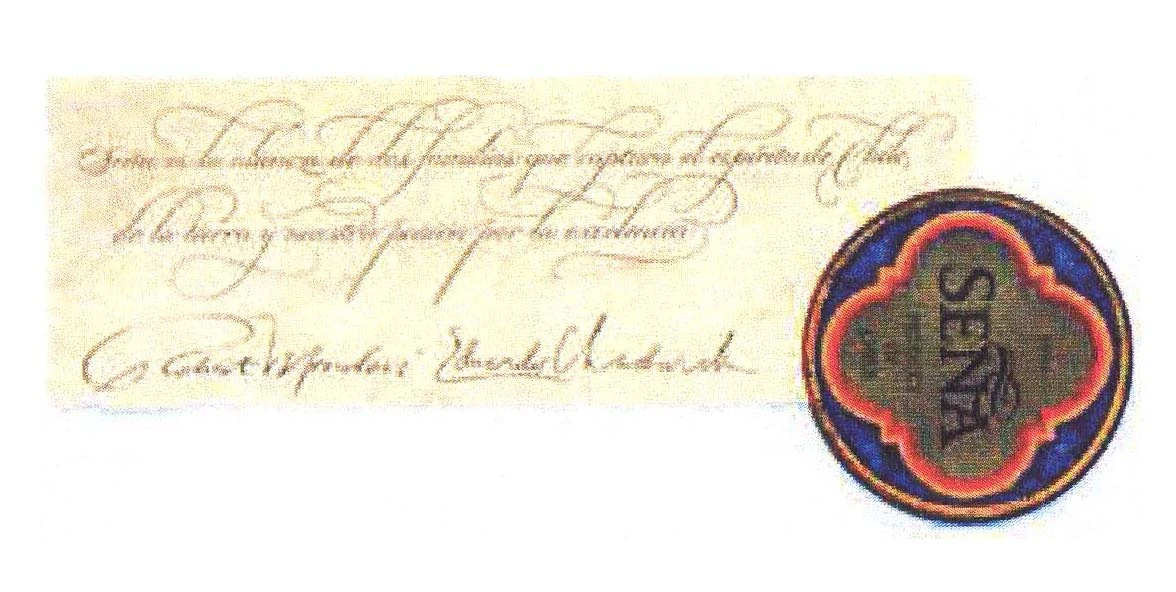 Seña es la alianza de dos familias que captura el espíritu de Chile,
de la tierra y nuestra pasión por la excelencia
Robert Mondavi Eduardo Chadwick
SEÑA